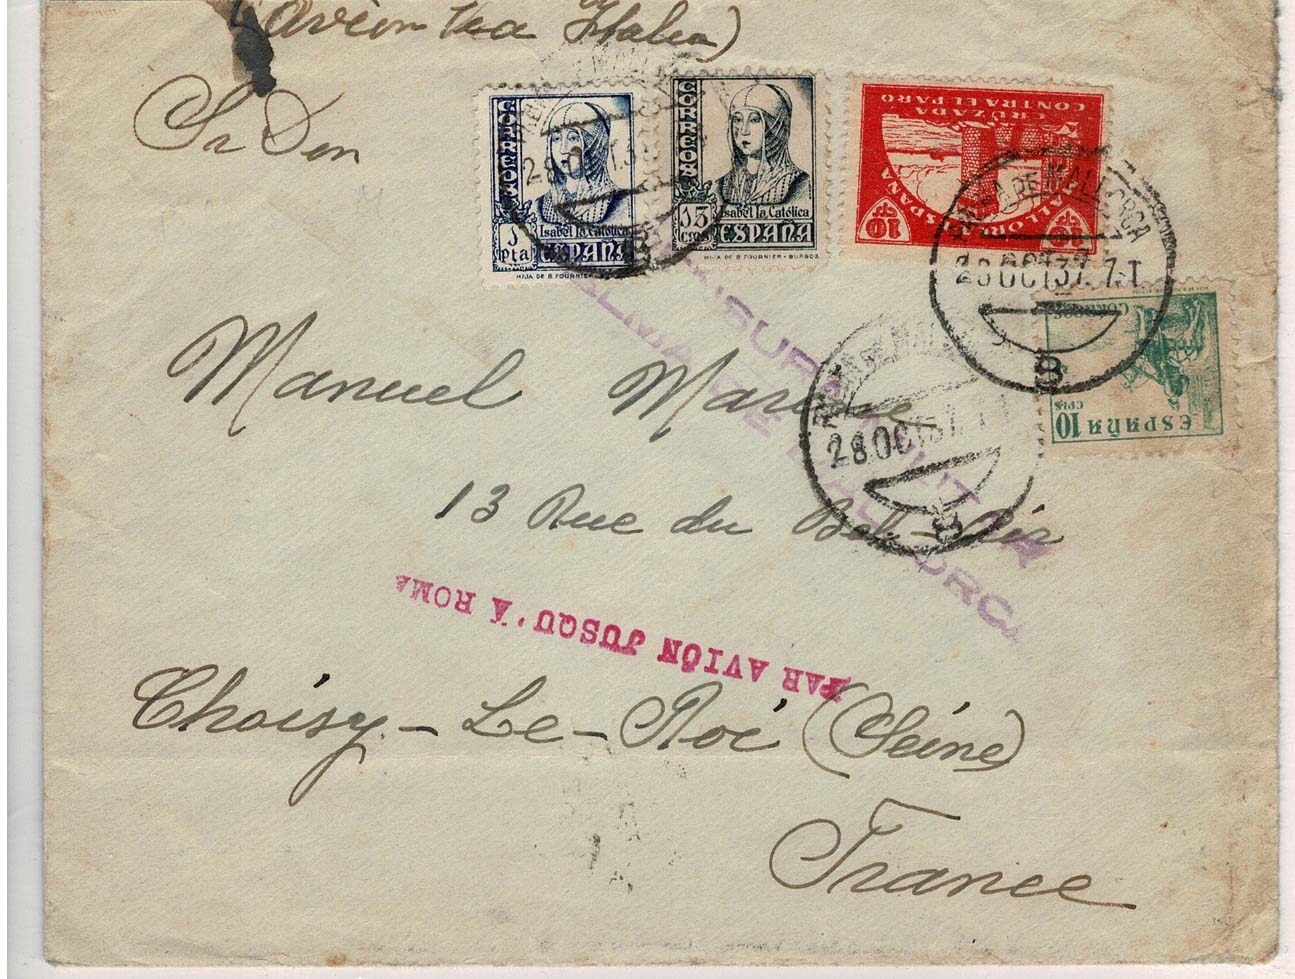 (avión via Italia)
Sr Don
CORREOS
1
pta
Isabel la Católica
ESPAÑA
HIJA DE B. FOURNIER
CORREOS
15
CTOS
Isabel la Católica
ESPAÑA
HIJA DE B. FOURNIER - BURGOS
CRUZADA
CONTRA EL PARO
MALLORCA
ESPAÑA
10
10
PALMA DE MALLORCA
28 OCT 37. 7·T
8
28 OCT 37
8
28 OCT 37. 7
8
CORREOS
10
CTS
ESPAÑA
CENSURA MILITAR
PALMA DE MALLORCA
Manuel
13 Rue du Bel-Air
PAR AVIÓN JUSQU'À ROMA
Choisy-Le-Roi (Seine)
France